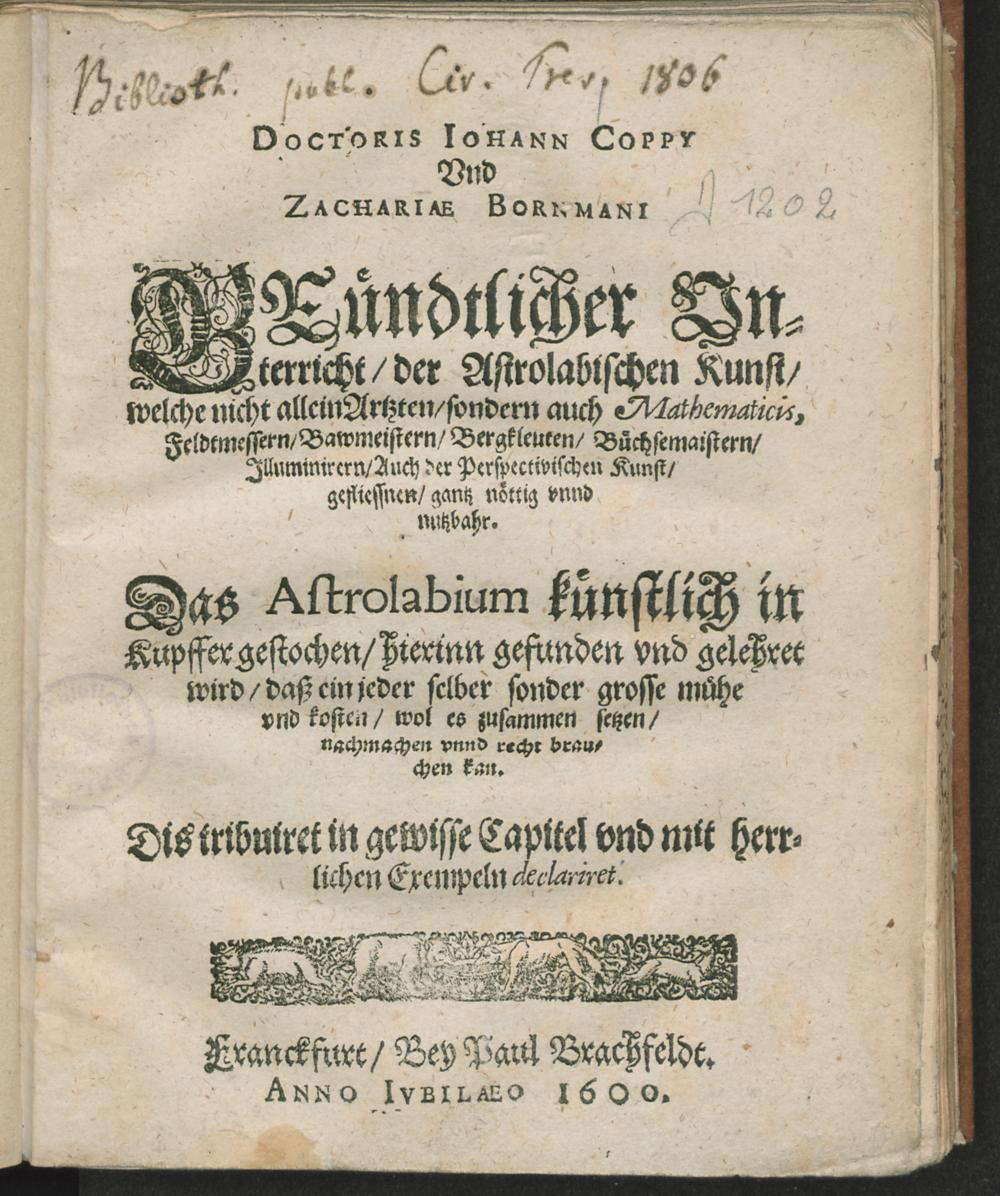 Biblioth. publ. Civ. Trev, 1806
DOCTORIS IOHANN COPPY
Vnd
ZACHARIAE BORNMANI
1202
GRündtlicher Vn⸗
terricht/ der Astrolabischen Kunst/
welche nicht allein Artzten/ sondern auch Mathematicis,
Feldtmessern/ Bawmeistern/ Bergkleuten/ Büchsemaistern/
Illuminirern/ Auch der Perspectivischen Kunst/
gefliessnen/ gantz nöttig vnnd
nutzbahr.
Das Astrolabium künstlich in
Kupffer gestochen/ hierinn gefunden vnd gelehret
wird/ daß ein jeder selber sonder grosse mühe
vnd kosten/ wol es zusammen setzen/
nachmachen vnnd recht brau⸗
chen kan.
Distribuiret in gewisse Capitel vnd mit herr⸗
lichen Exempeln declariret.
Franckfurt/ Bey Paul Brachfeldt.
ANNO IVBILAEO 1600.